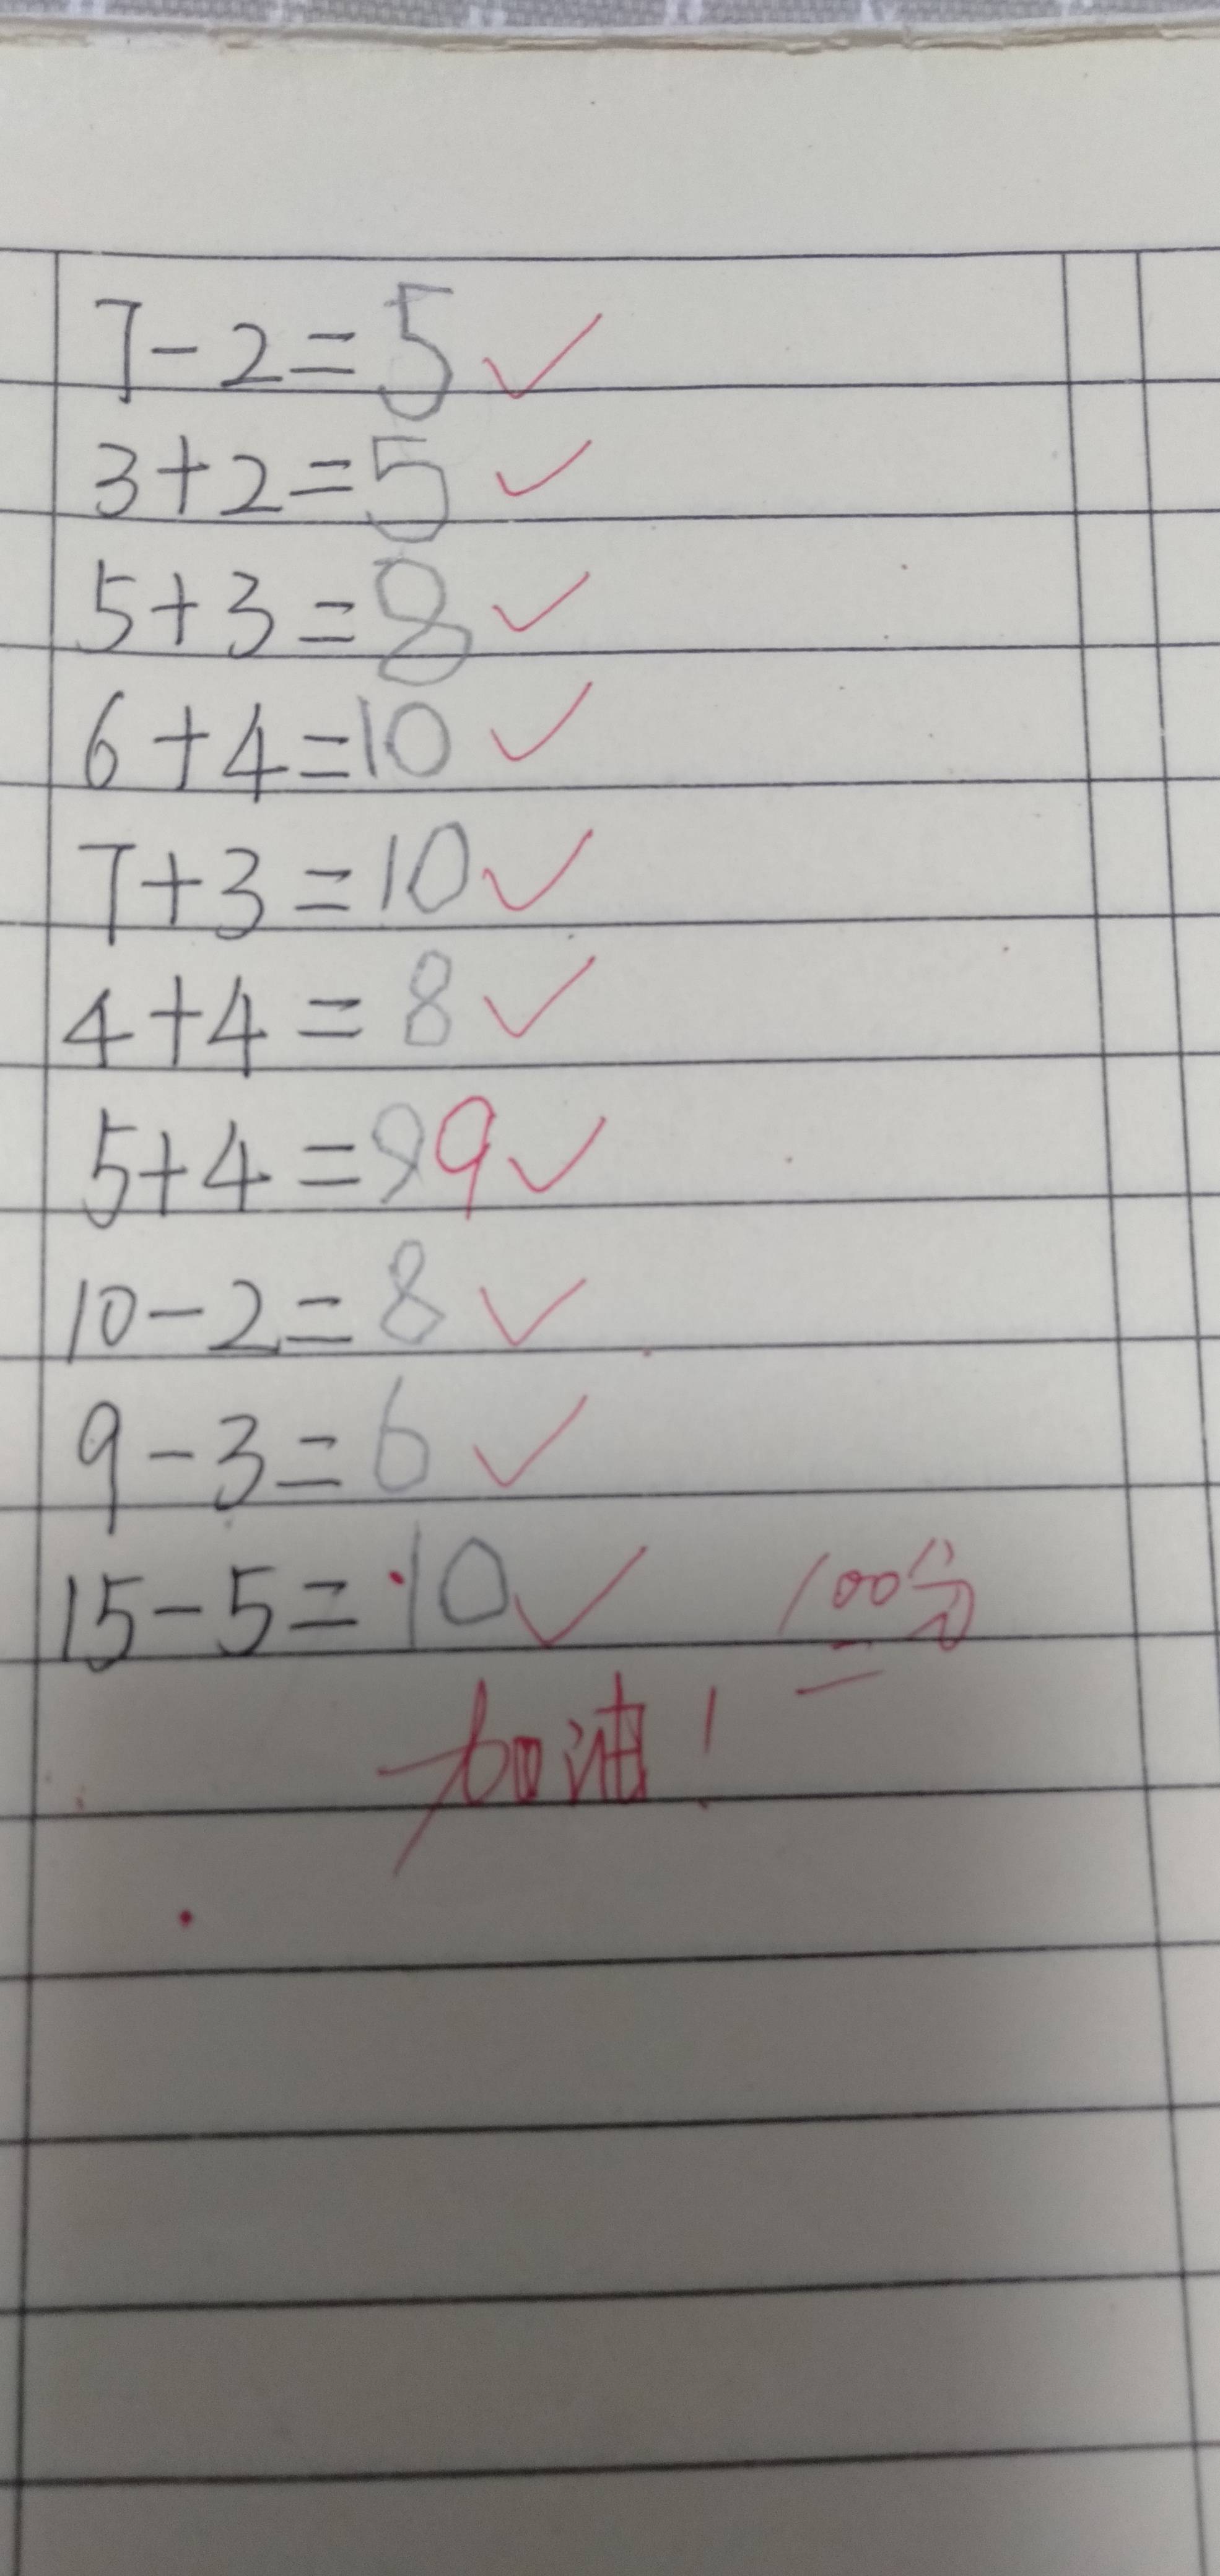 7-2=5✓
3+2=5✓
5+3=8✓
6+4=10✓
7+3=10✓
4+4=8✓
5+4=99✓
10-2=8✓
9-3=6✓
15-5=10✓ 100分
加油!